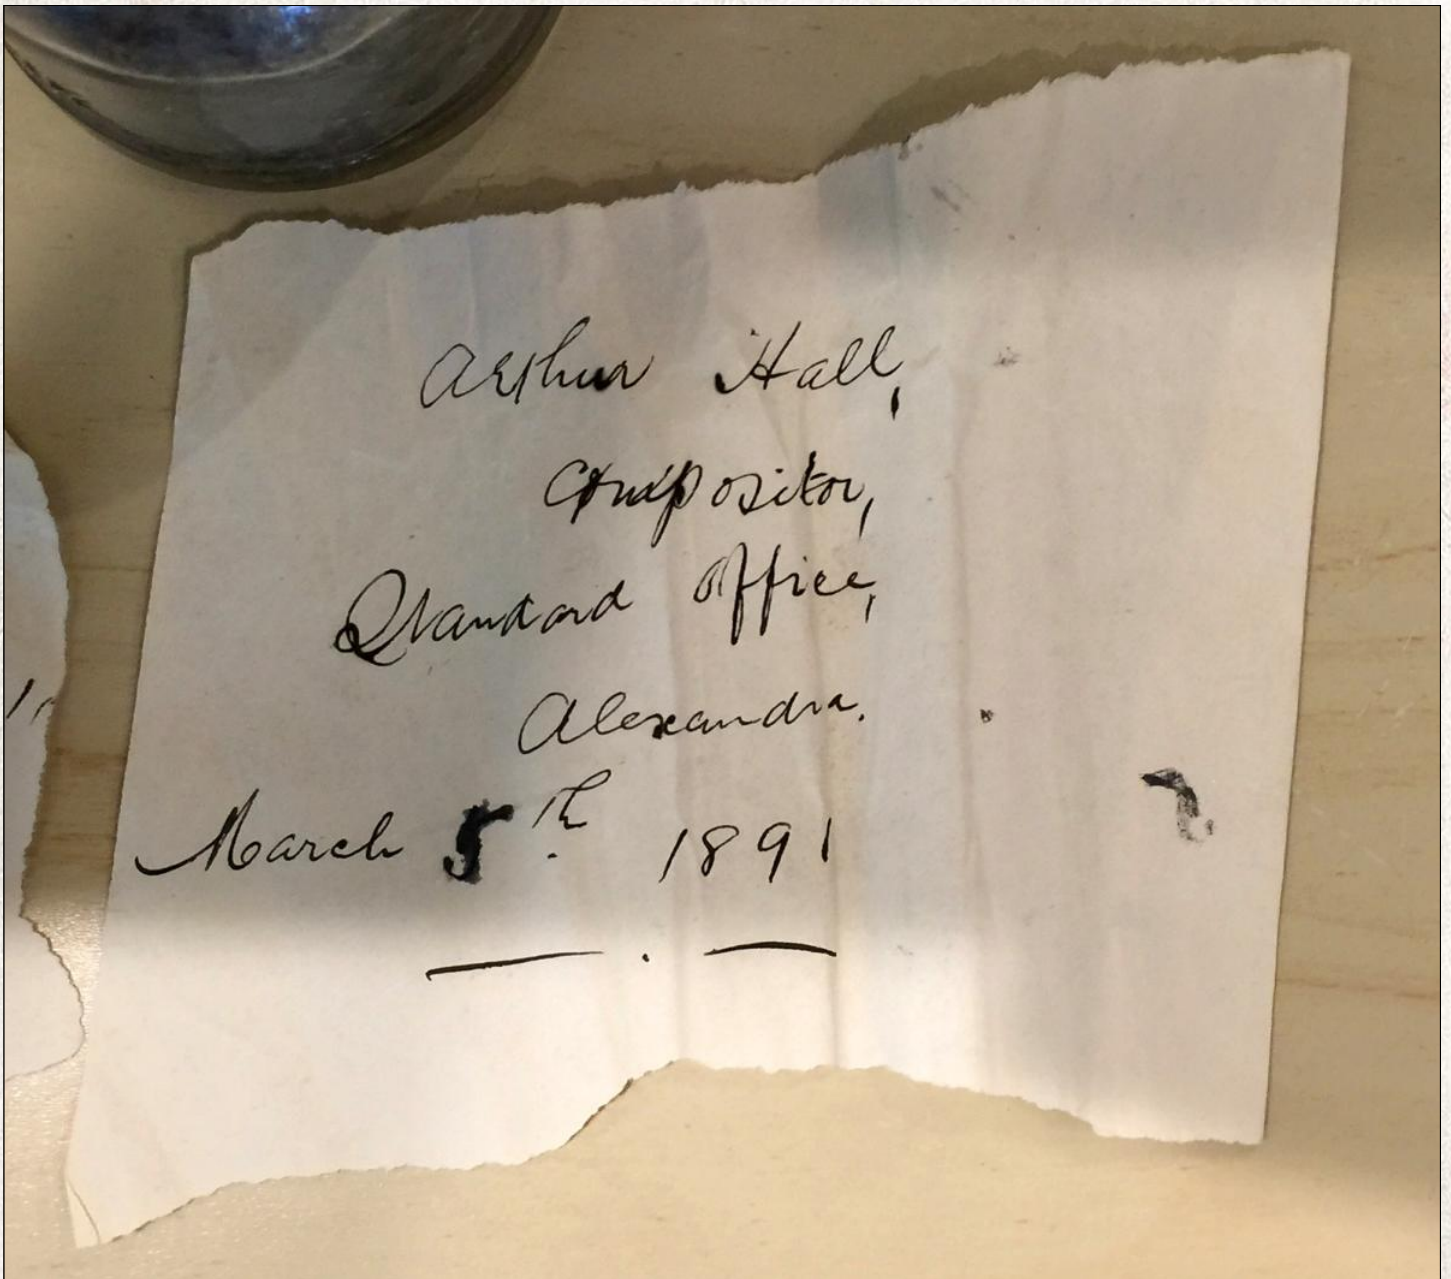 Arthur Hall,
Compositor,
Standard Office,
Alexandra.
March 5th 1891